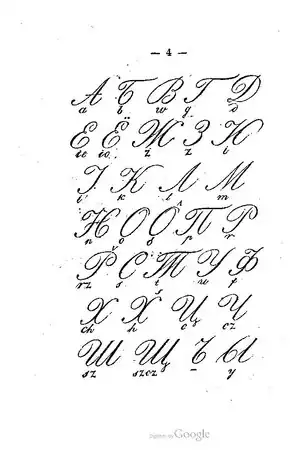 — 4 —
А Б В Г Д
a b w g d
Е Ё Ж З И
ie io ż z i
І К Л М
i k ł m
Н О О̂ П Р
n o ó p r
Р̌ С Т У Ф
rz s t u f
Х Х Ц Ч
ch h c cz
Ш Щ Ъ Ы
sz szcz — y
Digitized by Google